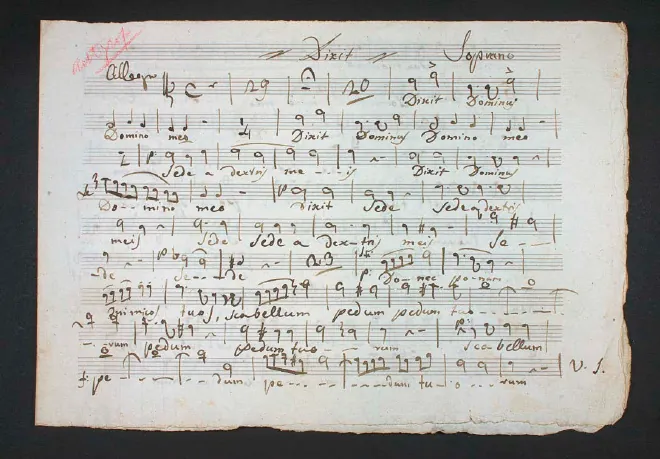 Dixit Soprano
Allegro 29 20 Dixit Dominus
Domino meo 4 Dixit Dominus Domino meo
Sede a dextris me - - - is Dixit Dominus
Do - - mino meo Dixit Sede Sede a dextris
meis Sede Sede a dex - tris meis Se - - -
- de se - - de 23 Donec ponam
inimicos tuos, scabellum pedum pedum tuo - - - - -
- - - rum pedum pedum tuo - - - rum scabellum
pe - - - - - dum pe - - - - - - - - - dum tu - o - - rum V. S.